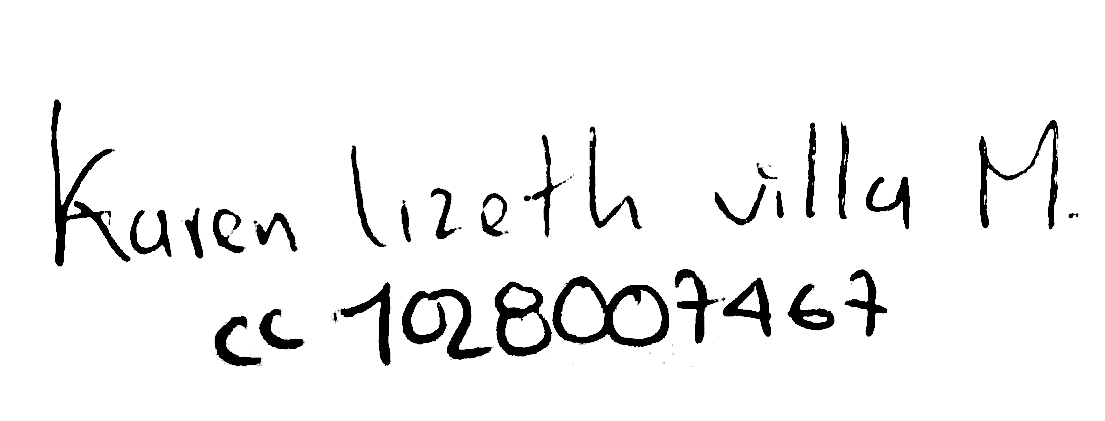 Karen lizeth villa M.
cc 1028007467